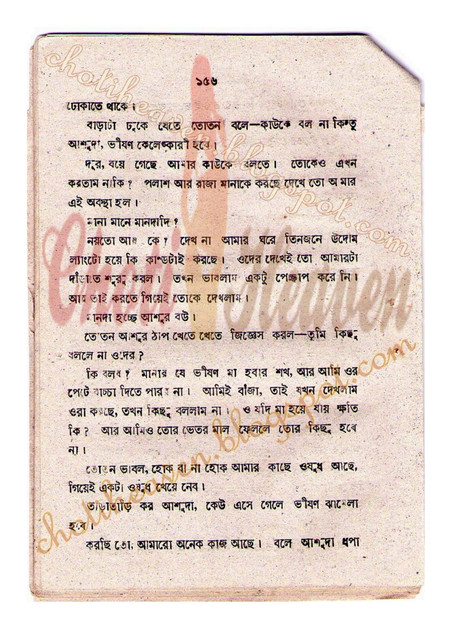 ১৫৬
ঢোকাতে থাকে।
বাড়াটা ঢুকে যেতে তোতন বলে—কাউকে বল না কিন্তু
আশুদা, ভীষণ কেলেঙ্কারী হবে।
দূর, বয়ে গেছে আমার কাউকে বলতে। তোকেও এখন
করতাম নাকি? পলাশ আর রাজা মানাকে করছে দেখে তো আমার
এই অবস্থা হল।
মানা মানে মানদাদি?
নয়তো আর কে? দেখ না আমার ঘরে তিনজনে উদোম
ল্যাংটো হয়ে কি কাণ্ডটাই করছে। ওদের দেখেই তো আমারটা
দাঁড়াতে শুরু করল। তখন ভাবলাম একটু পেচ্ছাপ করে নি।
আর তাই করতে গিয়েই তোকে দেখলাম।
মানদা হচ্ছে আশুর বউ।
তোতন আশুর ঠাপ খেতে খেতে জিজ্ঞেস করল—তুমি কিছু
বললে না ওদের?
কি বলব? মানার যে ভীষণ মা হবার শখ, আর আমি ওর
পেটে বাচ্চা দিতে পারছি না। আমিই বাঁজা, তাই যখন দেখলাম
ওরা করছে, তখন কিছু বললাম না। ও যদি মা হয়ে যায় ক্ষতি
কি? আর আমিও তোর ভেতর মাল ফেললে তোর কিছু হবে
না।
তোতন ভাবল, হোক বা না হোক আমার কাছে ওষুধ আছে,
গিয়েই একটা ওষুধ খেয়ে নেব।
তাড়াতাড়ি কর আশুদা, কেউ এসে গেলে ভীষণ ঝামেলা
হবে।
করছি তো, আমারো অনেক কাজ আছে। বলে আশুদা ধপা
Choti Heaven
chotiheaven.blogspot.com
chotiheaven.blogspot.com